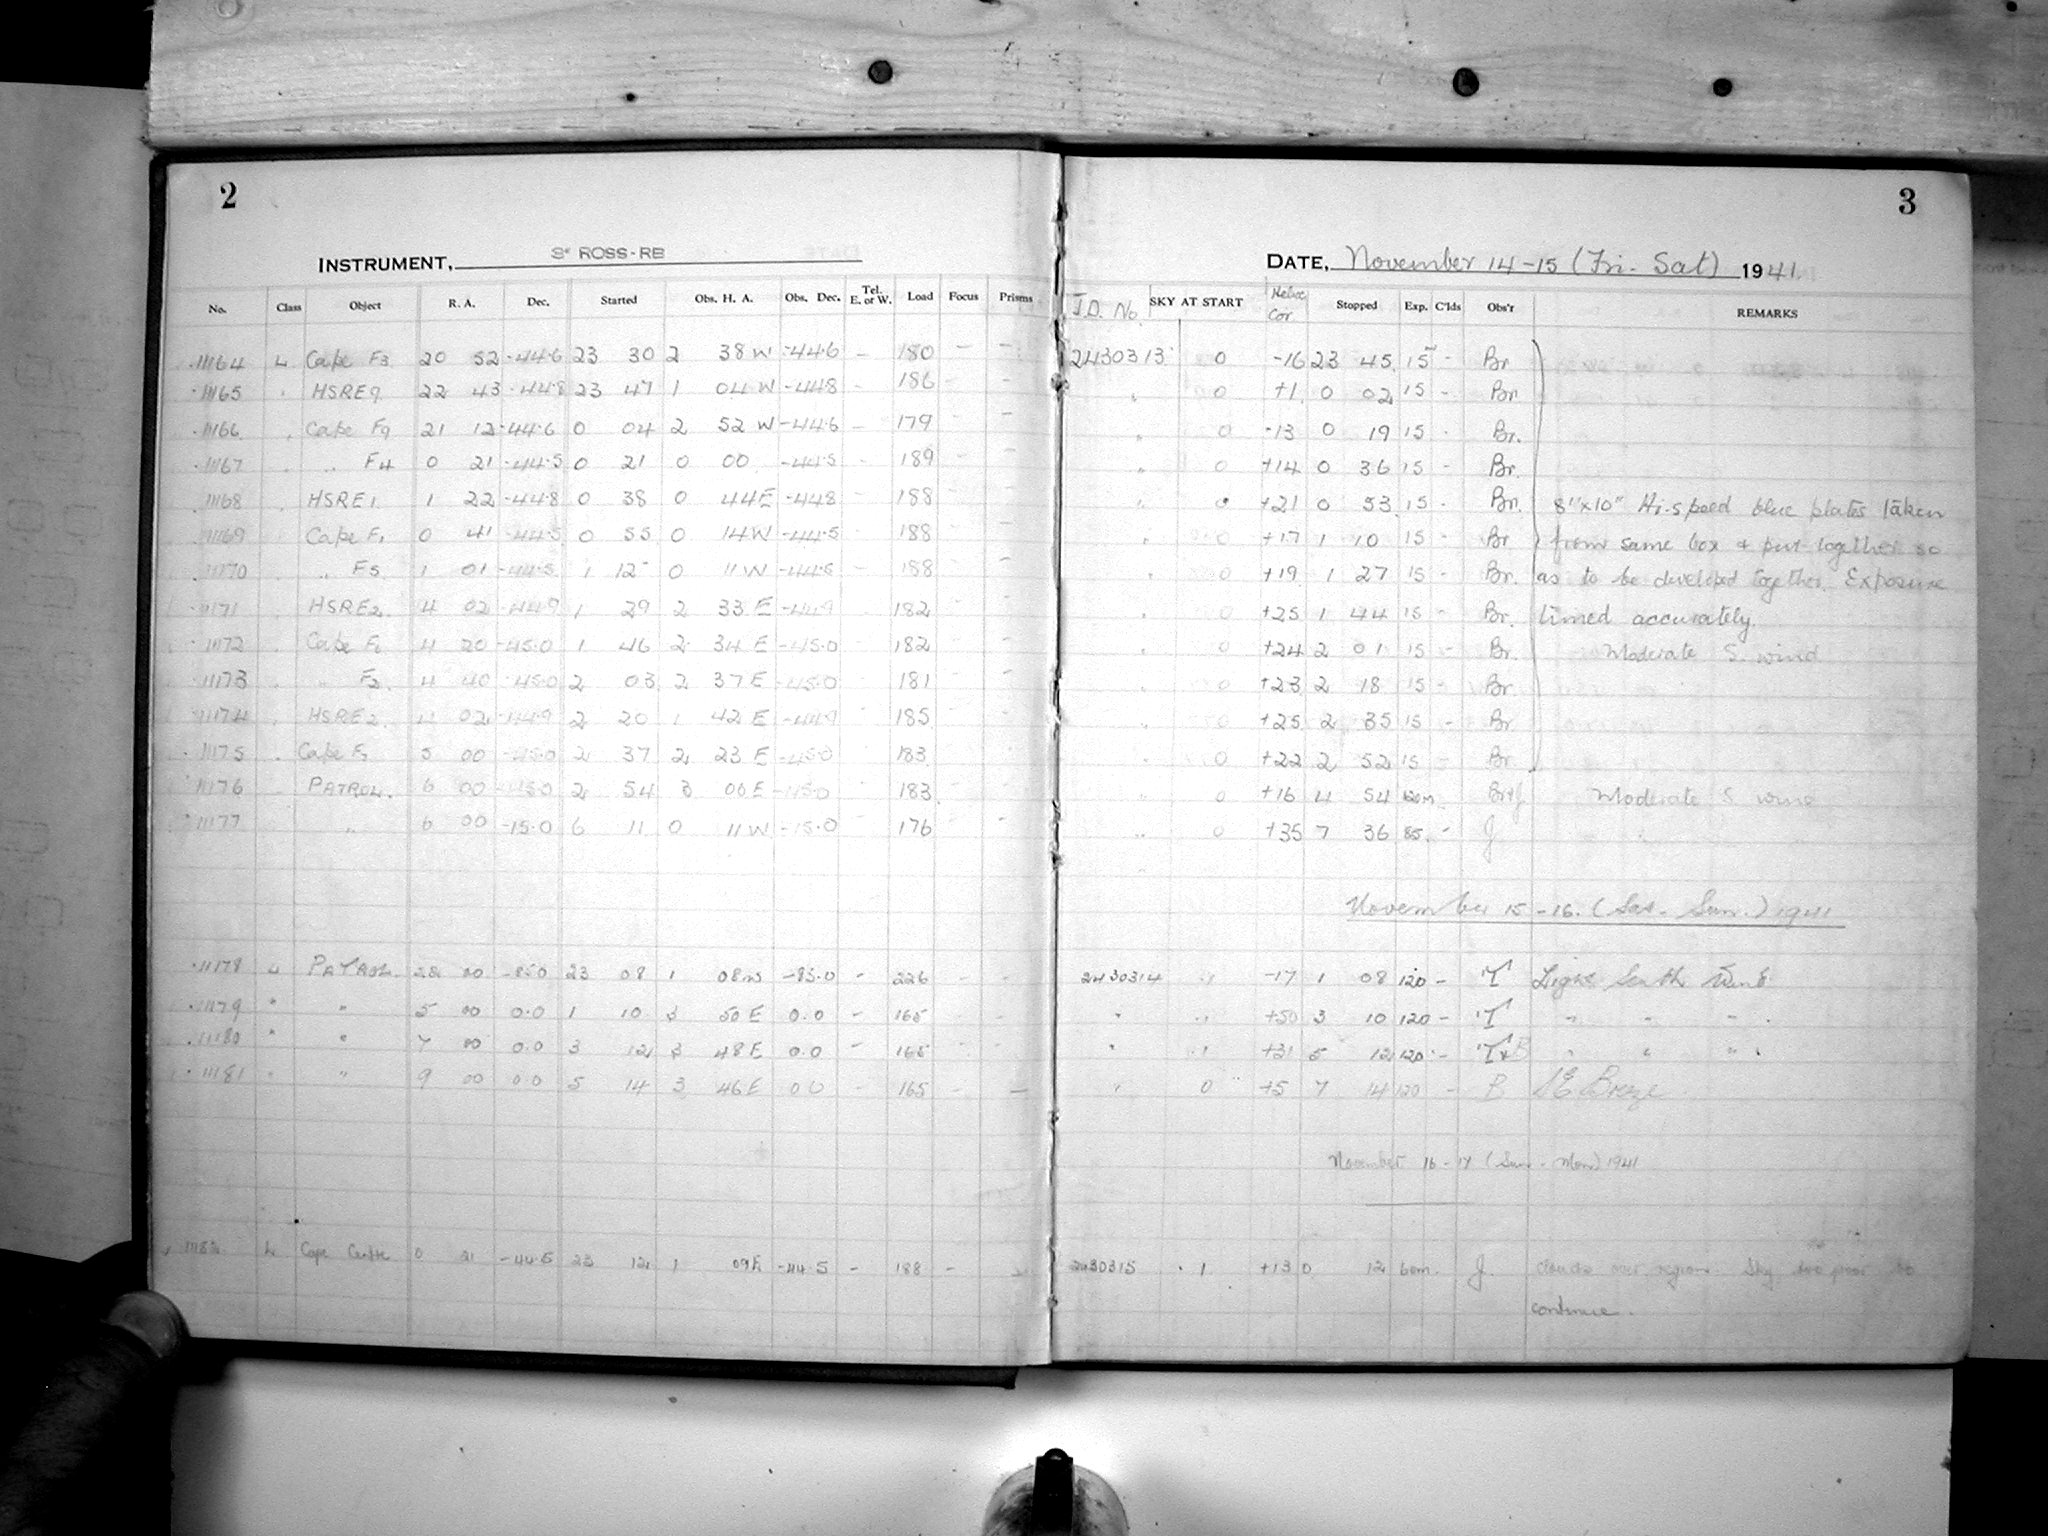 2
3
INSTRUMENT, 3" ROSS-RB
DATE, November 14-15 (Fri. Sat) 1941.
No. Class Object R. A. Dec. Started Obs. H. A. Obs. Dec. Tel. E. or W. Load Focus Prisms J.D. No. SKY AT START Helioc Cor Stopped Exp. C'lds Obs'r REMARKS
11164 L Cape F3 20 52 -44.6 23 30 2 38 W -44.6 - 180 - - 2430313 0 -16 23 45 15 - Br
11165 " HSRE 22 43 -44.8 23 47 1 04 W -44.8 - 186 - - " 0 +1 0 02 15 - Br
11166 " Cape F9 21 12 -44.6 0 04 2 52 W -44.6 - 179 - - " 0 -13 0 19 15 - Br.
11167 " " F4 0 21 -44.5 0 21 0 00 -44.5 - 189 - - " 0 +14 0 36 15 - Br.
11168 " HSRE1. 1 22 -44.8 0 38 0 44 E -44.8 188 - - " 0 +21 0 53 15 - Br. 8"x10" Hi-speed blue plates taken
11169 " Cape F1 0 41 -44.5 0 55 0 14 W -44.5 188 - - " 0 +17 1 10 15 - Br from same box & put together so
11170 " " F5 1 01 -44.5 1 12 0 11 W -44.5 188 - - " 0 +19 1 27 15 - Br. as to be developed together. Exposure
11171 " HSRE2. 4 02 -44.9 1 29 2 33 E -44.9 182 - - " 0 +25 1 44 15 - Br. timed accurately.
11172 " Cape F6 4 20 -45.0 1 46 2 34 E -45.0 182 - - " 0 +24 2 01 15 - Br. Moderate S. wind
11173 " " F2. 4 40 -45.0 2 03 2 37 E -45.0 181 - - " 0 +23 2 18 15 - Br.
11174 " HSRE2. 4 02 -44.9 2 20 1 42 E -44.9 185 - - " 0 +25 2 35 15 - Br.
11175 " Cape 5 00 -45.0 2 37 2 23 E -45.0 183 - - " 0 +22 2 52 15 - Br.
11176 " PATROL. 6 00 -15.0 2 54 3 06 E -15.0 183 - - " 0 +16 4 54 120m Br+J Moderate S. wind
11177 " " 6 00 -15.0 6 11 0 11 W -15.0 176 - " 0 +35 7 36 85 - J
November 15-16. (Sat - Sun.) 1941
11178 L PATROL 22 00 -85.0 23 08 1 08 W -85.0 - 226 - - 2430314 -17 1 08 120 - T Light South Wind
11179 " " 5 00 0.0 1 10 3 50 E 0.0 - 165 - - " +50 3 10 120 - T " " "
11180 " " 7 00 0.0 3 12 3 48 E 0.0 - 165 - - " +31 5 12 120 - T+B " " "
11181 " " 9 00 0.0 5 14 3 46 E 0.0 - 165 - - " 0 +5 7 14 120 - B SE Breeze
November 16-17 (Sun - Mon) 1941
11182 L Cape Centre 0 21 -44.5 23 12 1 09 E -44.5 - 188 - - 2430315 1 +13 0 12 60m. J. Clouds over region. Sky too poor to
continue.